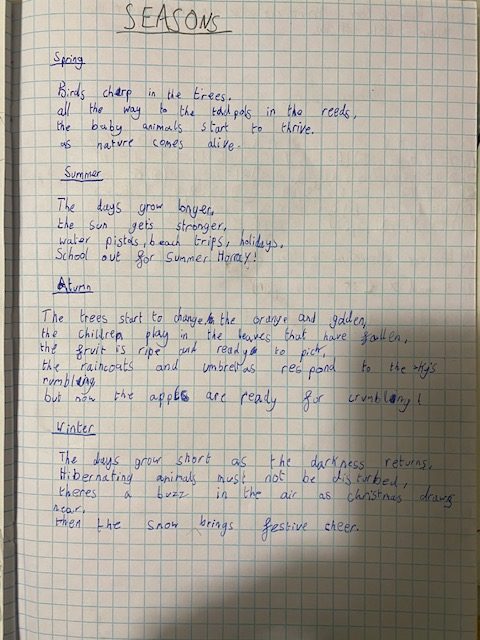 SEASONS
Spring
Birds charp in the trees.
all the way to the tadpols in the reeds,
the baby animals start to thrive.
as nature comes alive.
Summer
The days grow longer,
the sun gets stronger,
water pistols, beach trips, holidays,
School out for Summer HoRAY!
Atumn
The trees start to change to the orange and golden,
the children play in the leaves that have fallen,
the fruit is ripe and ready to pick,
the raincoats and umbrellas respond to the sky's
rumbling
but now the apples are ready for crumbling!
Winter
The days grow short as the darkness returns,
Hibernating animals must not be disturbed,
theres a buzz in the air as christmas draws
near,
then the snow brings festive cheer.